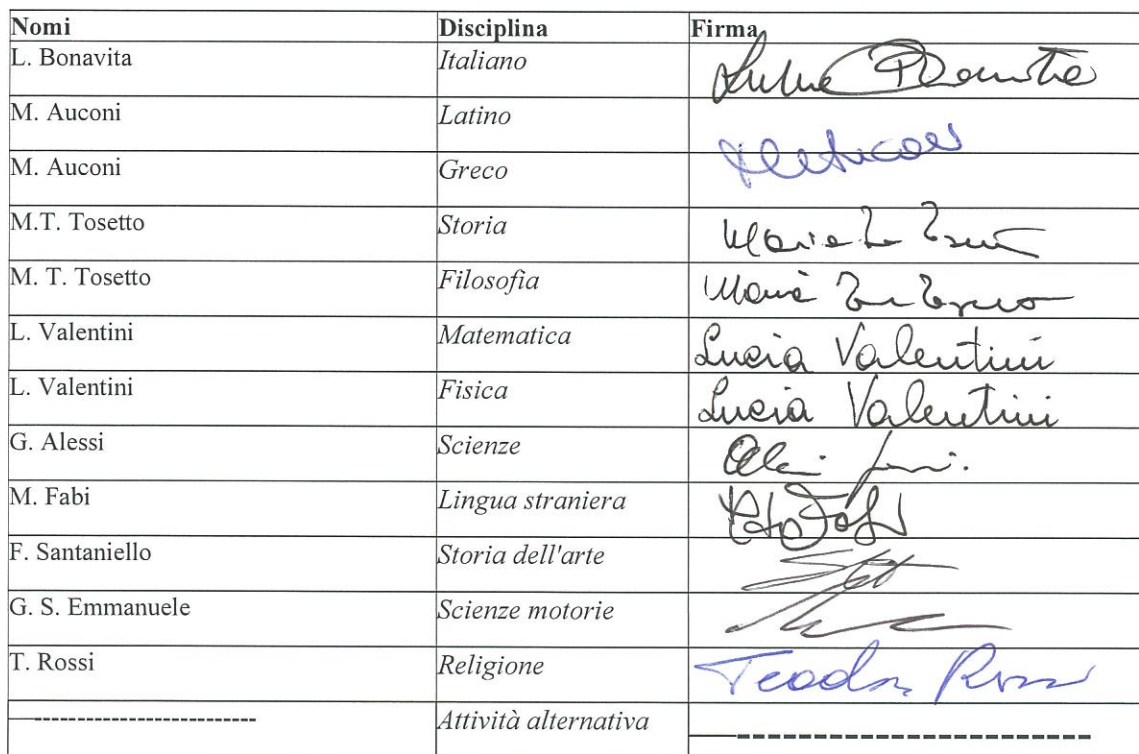 Nomi Disciplina Firma
L. Bonavita Italiano
M. Auconi Latino
M. Auconi Greco
M.T. Tosetto Storia
M. T. Tosetto Filosofia
L. Valentini Matematica Lucia Valentini
L. Valentini Fisica Lucia Valentini
G. Alessi Scienze
M. Fabi Lingua straniera
F. Santaniello Storia dell'arte
G. S. Emmanuele Scienze motorie
T. Rossi Religione Rossi
Attività alternativa